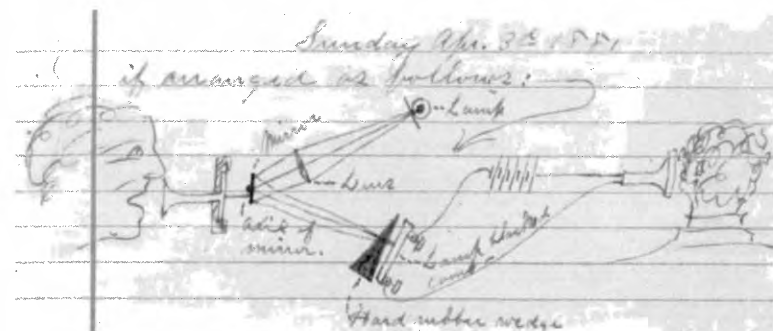 Sunday Apr. 3d 1881,
if arranged as follows:
Lamp
mirror
Lens
axis of
mirror.
Lamp black
Hard rubber wedge